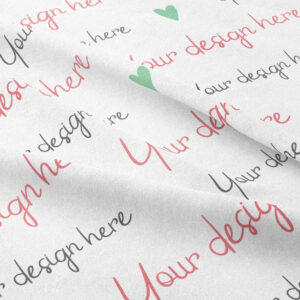 Your design here
our design here
design here
our design here
r design here
Your design
Your de
here
Your design here
r design here
Your design